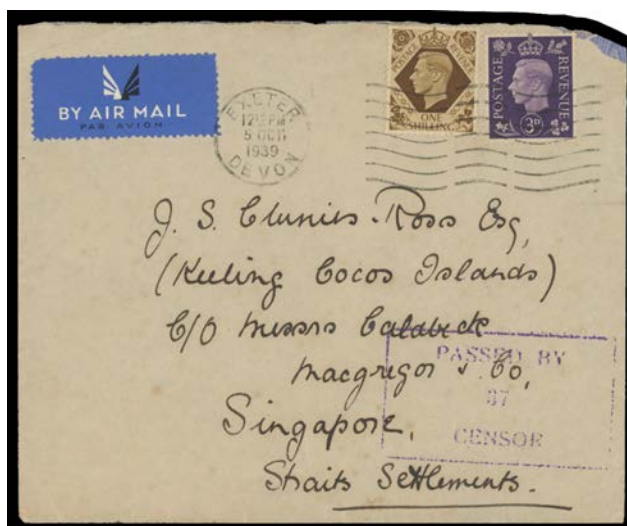 BY AIR MAIL
PAR AVION
EXETER
5 OC
1939
DEVON
POSTAGE REVENUE
ONE
SHILLING
POSTAGE REVENUE
3D
J. S. Clunies-Ross Esq,
(Keeling Cocos Islands)
C/O Messrs
Macgregor & Co,
Singapore,
Straits Settlements.
PASSED BY
37
CENSOR